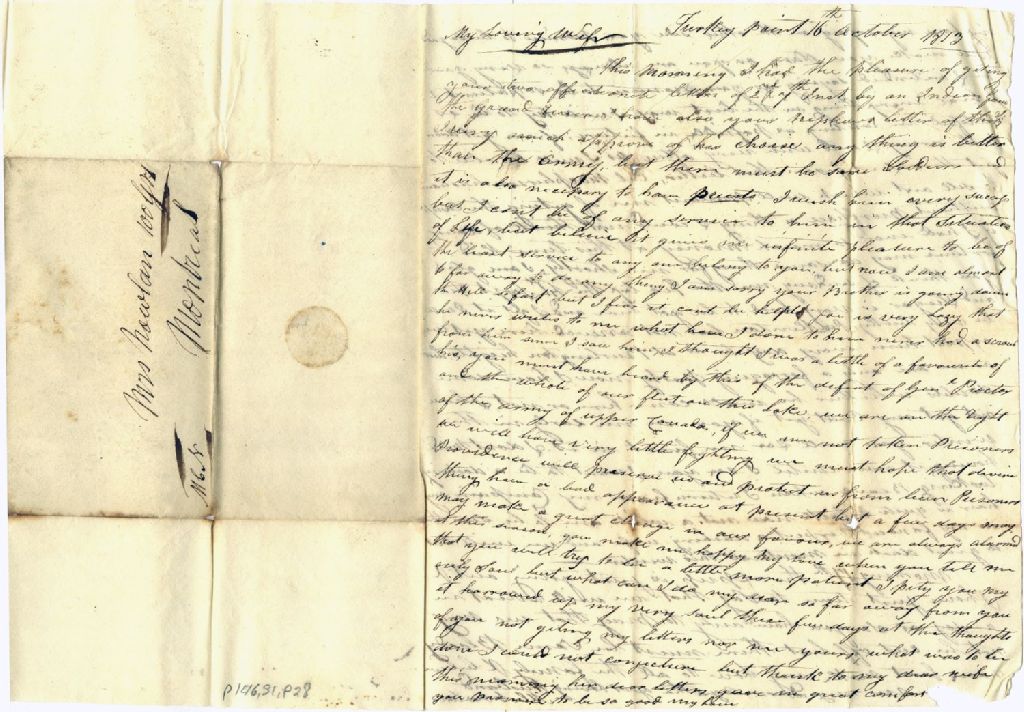 My Loving Wife Turkey point 16th October 1813
this morning I had the pleasure of geting
your two affectionate letter of 5th & 7th Inst by an Indian from
the Grand River from also your nephews letter of the
I very much approve of his choise any thing is better
than the army, but there must be some Soldiers and
it is also necessary to have I wish him every success
but I cant be of any service to him in that situation
of Life, but believe it gives me infinite pleasure to be of
the least service to any one belong to you, but now I am almost
to far away to do any thing I am sorry your Brother is going down
the Hill so fast but I find it cant be helpt you is very Lazy that
he never writes to me what have I done to him never had a scrawl
from him since I saw him, I thought I was a little of a favourite of
his, you must have heard by this of the defeat of Genl Proctor
and the whole of our fleet on this Lake we are on the right
of the army of upper Canada, if we are not taken Prisoners
we will have very little fighting we must hope that devine
Providence will preserve us and protect us from been Prisoners
things have a bad appearance at present but a few days may
may make a great change in our favour, we are always alarmd
at this season, you make me happy my love when you tell me
that you will try to be a little more patient I pity you my
only Soul but what can I do my dear so far away from you
it harrowed up my very Soul these few days at the thoughts
of you not geting my letters nor me yours, what was to be
done I could not conjecture but thanks to my dear wife
this morning her two letters gave me great comfort
you promise to be so good my love
Mrs Nowlan Wolfes
Montreal
No. 8
P146,S1,P28